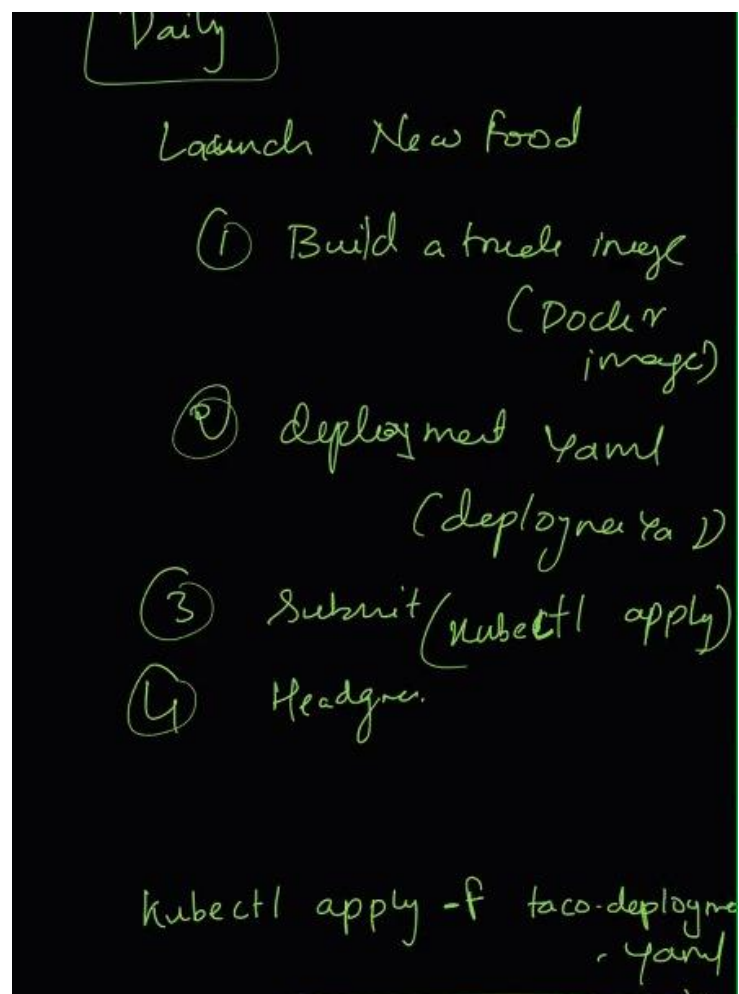 Daily
Launch New food
① Build a truck image
(Docker
image)
② deployment Yaml
(deployme Ya )
③ Submit (kubectl apply)
④
kubectl apply -f taco-deployme
.yaml